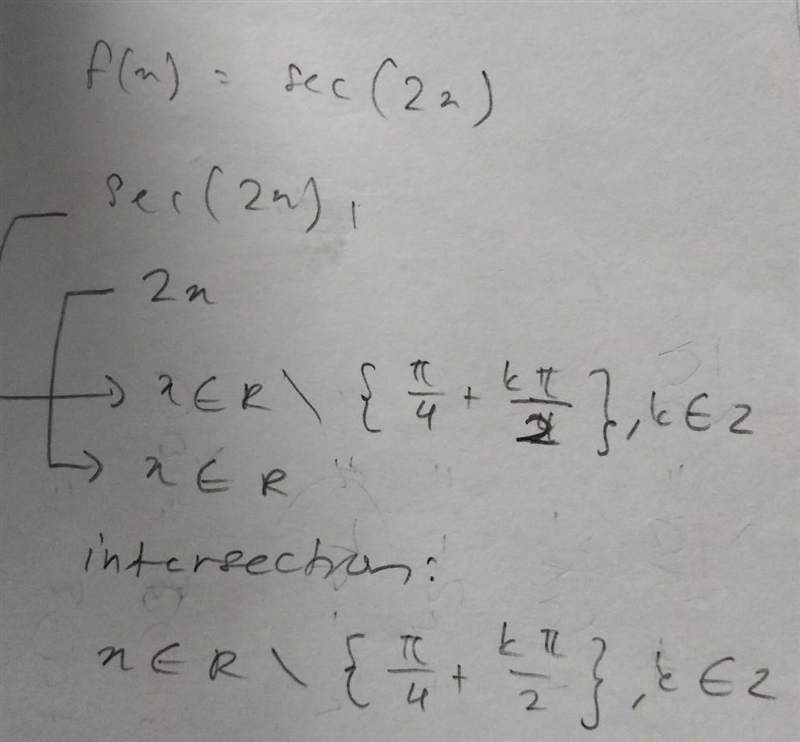 f(x) = sec(2x)
sec(2x),
2x
→ x ∈ R \ { π/4 + kπ/2 }, k ∈ Z
→ x ∈ R
intersection:
x ∈ R \ { π/4 + kπ/2 }, k ∈ Z